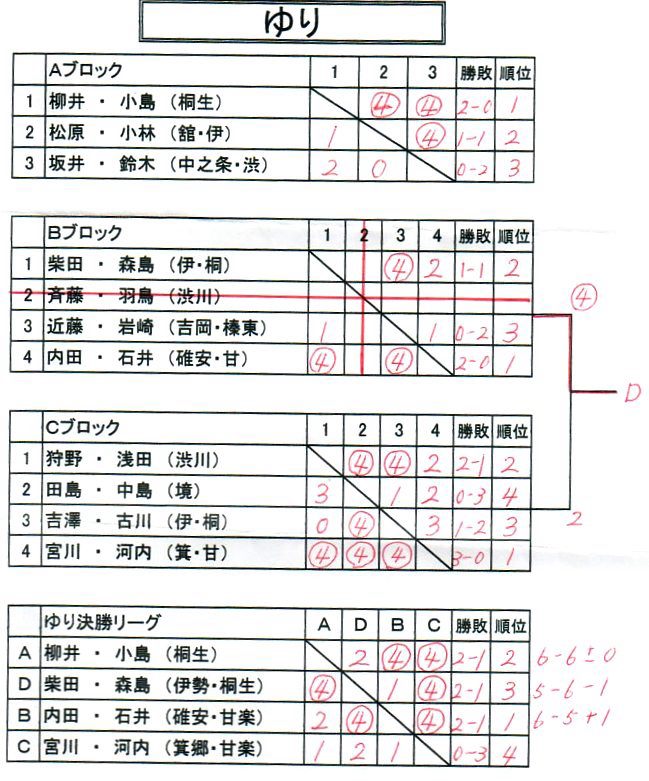 ゆり
Aブロック 1 2 3 勝敗 順位
1 柳井 ・ 小島 (桐生) ④ ④ 2-0 1
2 松原 ・ 小林 (舘・伊) 1 ④ 1-1 2
3 坂井 ・ 鈴木 (中之条・渋) 2 0 0-2 3
Bブロック 1 2 3 4 勝敗 順位
1 柴田 ・ 森島 (伊・桐) ④ 2 1-1 2
2 斉藤 ・ 羽鳥 (渋川)
④
3 近藤 ・ 岩崎 (吉岡・榛東) 1 1 0-2 3
4 内田 ・ 石井 (碓安・甘) ④ ④ 2-0 1
D
Cブロック 1 2 3 4 勝敗 順位
1 狩野 ・ 浅田 (渋川) ④ ④ 2 2-1 2
2 田島 ・ 中島 (境) 3 1 2 0-3 4
3 吉澤 ・ 古川 (伊・桐) 0 ④ 3 1-2 3
2
4 宮川 ・ 河内 (箕・甘) ④ ④ ④ 3-0 1
ゆり決勝リーグ A D B C 勝敗 順位
A 柳井 ・ 小島 (桐生) 2 ④ ④ 2-1 2 6-6±0
D 柴田 ・ 森島 (伊勢・桐生) ④ 1 ④ 2-1 3 5-6-1
B 内田 ・ 石井 (碓安・甘楽) 2 ④ ④ 2-1 1 6-5+1
C 宮川 ・ 河内 (箕郷・甘楽) 1 2 1 0-3 4